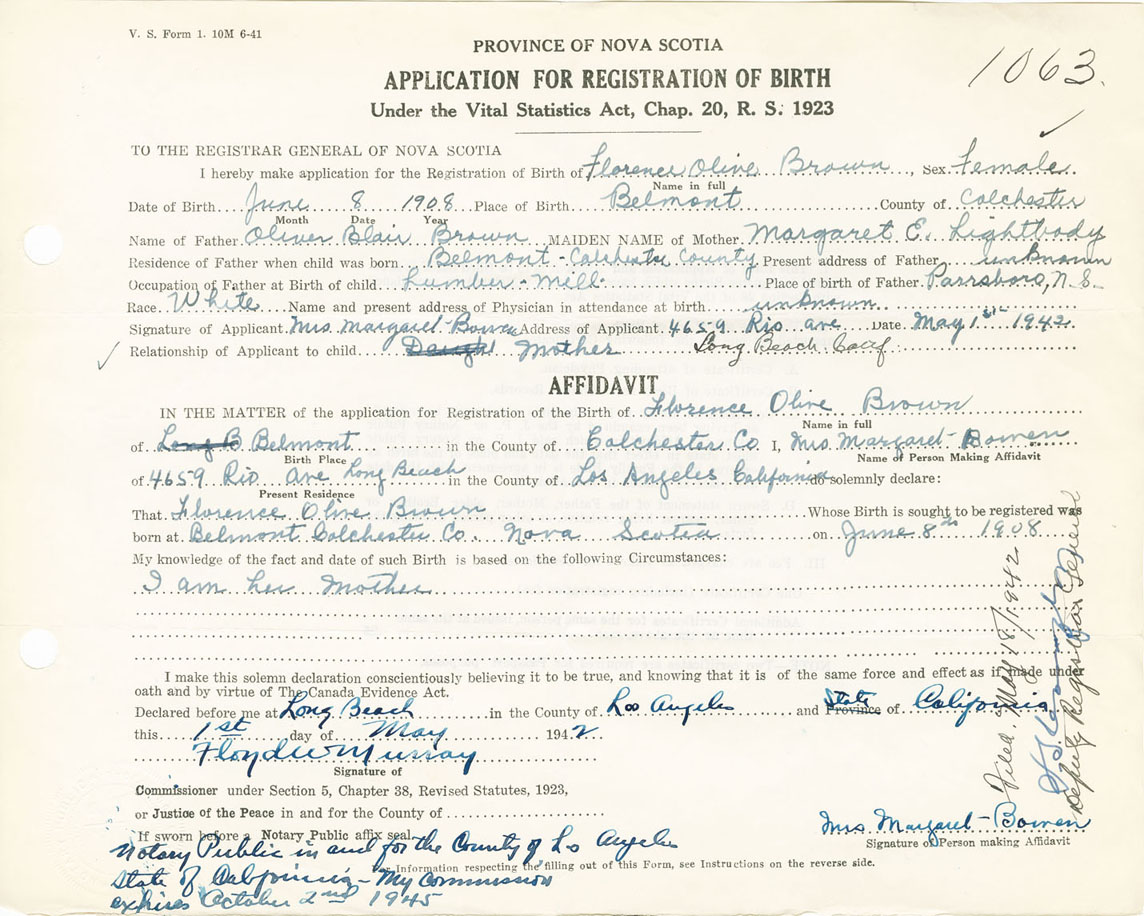 V. S. Form 1. 10M 6-41
1063.
PROVINCE OF NOVA SCOTIA
APPLICATION FOR REGISTRATION OF BIRTH
Under the Vital Statistics Act, Chap. 20, R. S. 1923
TO THE REGISTRAR GENERAL OF NOVA SCOTIA
I hereby make application for the Registration of Birth of Florence Olive Brown, Sex Female
Name in full
Date of Birth June 8 1908 Place of Birth Belmont County of Colchester
Month Date Year
Name of Father Oliver Blair Brown MAIDEN NAME of Mother Margaret E. Lightbody
Residence of Father when child was born Belmont - Colchester County Present address of Father unknown
Occupation of Father at Birth of child Lumber - Mill Place of birth of Father Parrsboro, N.S.
Race White Name and present address of Physician in attendance at birth unknown
Signature of Applicant Mrs. Margaret Bowen Address of Applicant 4659 Rio ave Date May 1st 1942
Relationship of Applicant to child Daught Mother Long Beach Calif
AFFIDAVIT
IN THE MATTER of the application for Registration of the Birth of Florence Olive Brown
Name in full
of Long B Belmont in the County of Colchester Co I, Mrs Margaret Bowen
Birth Place Name of Person Making Affidavit
of 4659 Rio Ave Long Beach in the County of Los Angeles California do solemnly declare:
Present Residence
That Florence Olive Brown Whose Birth is sought to be registered was
born at Belmont Colchester Co. Nova Scotia on June 8th 1908
My knowledge of the fact and date of such Birth is based on the following Circumstances:
I am her Mother
I make this solemn declaration conscientiously believing it to be true, and knowing that it is of the same force and effect as if made under
oath and by virtue of The Canada Evidence Act.
Declared before me at Long Beach in the County of Los Angeles and Province State of California
this 1st day of May 1942
Floyd W Murray
Signature of
Commissioner under Section 5, Chapter 38, Revised Statutes, 1923,
or Justice of the Peace in and for the County of
If sworn before a Notary Public affix seal.
Notary Public in and for the County of Los Angeles
State of California - My Commission
expires October 2nd 1945
Mrs Margaret Bowen
Signature of Person making Affidavit
For Information respecting the filling out of this Form, see Instructions on the reverse side.
Filed May 18/1942
Deputy Registrar General